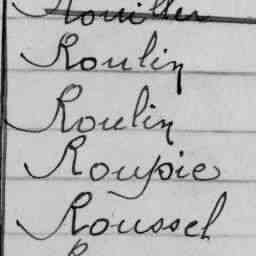 Rouiller
Roulin
Roulin
Roupie
Roussel